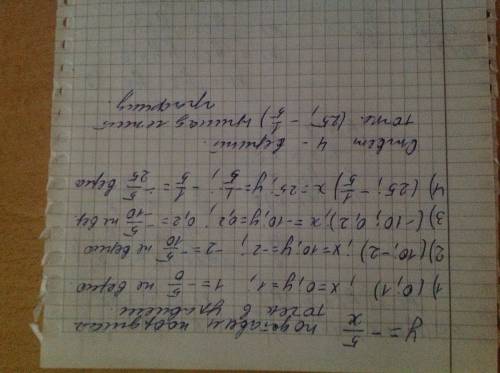 y = -5/x подставим координаты
точек в уравнение.
1) (0;1) ; x=0; y=1; 1=-5/0 не верно
2) (10;-2) ; x=10; y=-2; -2=-5/10 не верно
3) (-10; 0,2); x=-10, y=0,2; 0,2=-5/-10 не ве
4) (25; -1/5) x=25; y=-1/5; -1/5=-5/25 верно
Ответ 4 - верный.
точка (25; -1/5) принадлежит
графику.